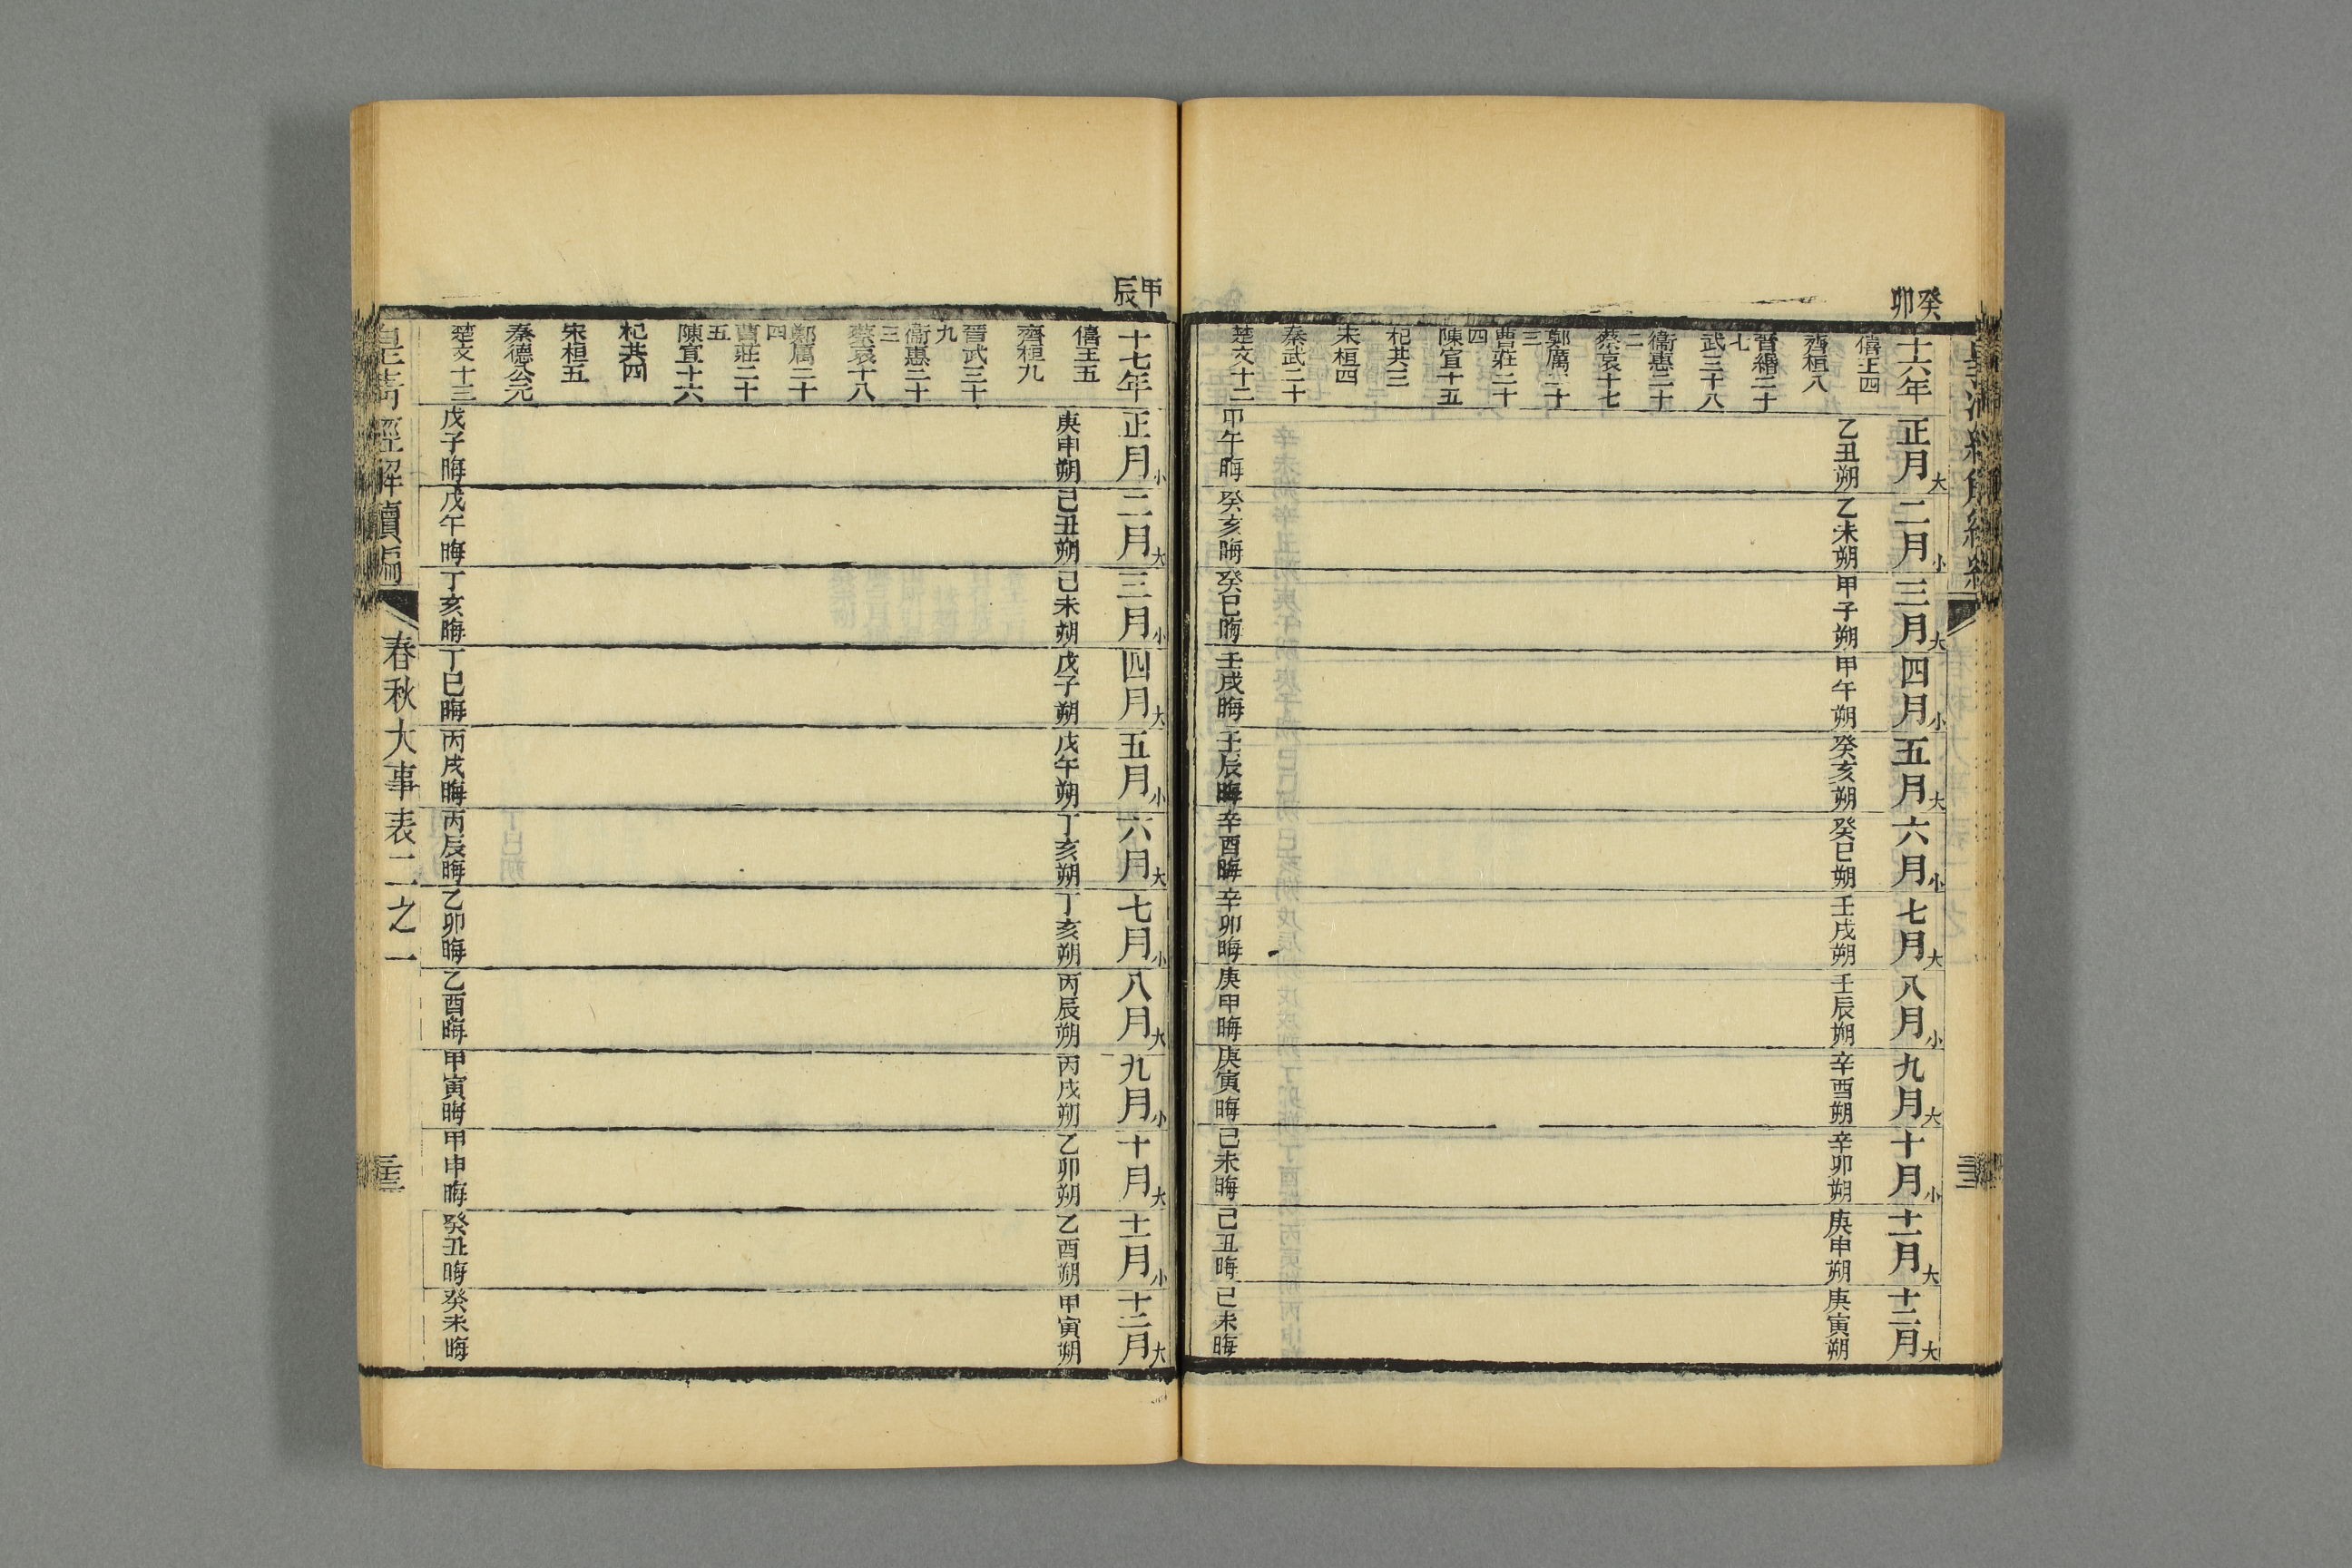 癸卯
十六年
僖王四
齊桓八
晉緡二十七
武三十八
衞惠二十二
蔡哀十七
鄭厲二十三
曹莊二十四
陳宣十五
杞共三
宋桓四
秦武二十
楚文十二
正月大
乙丑朔
甲午晦
二月小
乙未朔
癸亥晦
三月大
甲子朔
癸巳晦
四月小
甲午朔
壬戌晦
五月大
癸亥朔
壬辰晦
六月小
癸巳朔
辛酉晦
七月大
壬戌朔
辛卯晦
八月小
壬辰朔
庚申晦
九月大
辛酉朔
庚寅晦
十月小
辛卯朔
己未晦
十一月大
庚申朔
己丑晦
十二月大
庚寅朔
己未晦
甲辰
十七年
僖王五
齊桓九
晉武三十九
衞惠二十三
蔡哀十八
鄭厲二十四
曹莊二十五
陳宣十六
杞共四
宋桓五
秦德公元
楚文十三
正月小
庚申朔
戊子晦
二月大
己丑朔
戊午晦
三月小
己未朔
丁亥晦
四月大
戊子朔
丁巳晦
五月小
戊午朔
丙戌晦
六月大
丁亥朔
丙辰晦
七月小
丁亥朔
乙卯晦
八月大
丙辰朔
乙酉晦
九月小
丙戌朔
甲寅晦
十月大
乙卯朔
甲申晦
十一月小
乙酉朔
癸丑晦
十二月大
甲寅朔
癸未晦
皇清經解續編
春秋大事表二之一